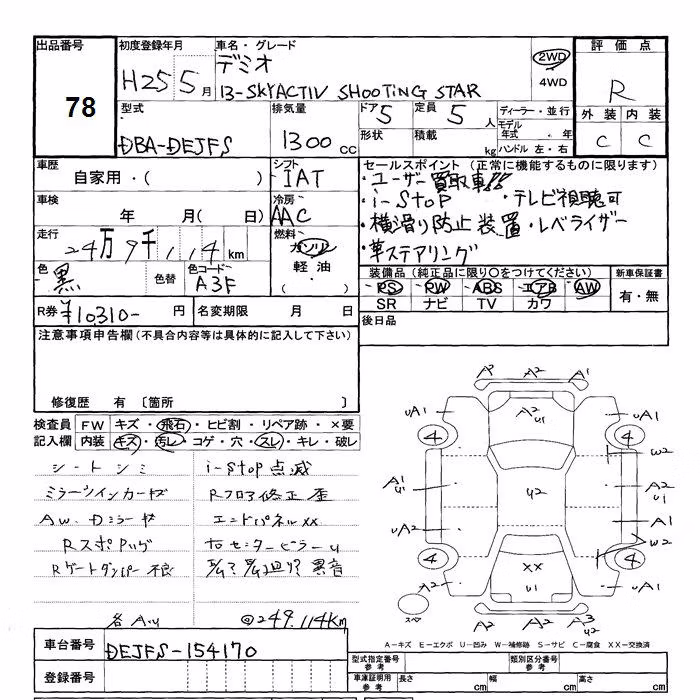 出品番号
78
初度登録年月
H25 5月
車名・グレード
デミオ
13-SKYACTIV SHOOTING STAR
2WD
4WD
評価点
R
外装 内装
C C
型式
DBA-DEJFS
排気量
1300 cc
ドア 5
定員 5人
形状
積載 kg
ディーラー・並行
モデル年式 ・ 年
ハンドル 左・右
車歴
自家用・( )
シフト
IAT
車検
年 月( 日)
冷房
AAC
走行
24万9千114km
燃料
ガソリン
軽油・
( )
色
黒
色替
色コード
A3F
セールスポイント (正常に機能するものに限ります)
・ユーザー買取車!!
・i-stop ・テレビ視聴可
・横滑り防止装置・レベライザー
・革ステアリング
装備品(純正品に限り○をつけてください)
PS PW ABS エアB AW
SR ナビ TV カワ
新車保証書
有・無
R券 ¥10,310- 円
名変期限 月 日
後日品
注意事項申告欄(不具合内容等は具体的に記入して下さい)
修復歴 有 〔箇所 〕
検査員記入欄
FW キズ・飛石・ヒビ割・リペア跡・×要
内装 キズ・汚レ・コゲ・穴・スレ・キレ・破レ
シートシミ
ミラーウインカーキズ
AW、Dミラーキズ
Rゲートダンパー不良
i-stop点滅
Rフロア修正歪
エンドパネルXX
異音
各AU
@249.114km
車台番号
DEJFS-154170
登録番号
A2 A1
A2 U1
UA1 UA1
4 4
W2
A1 U1
U2
A2 U1
A1
UA2
W2
4 4
XX
U1
A2 UA1
スペア
A2 A2 A3 U2
A-キズ E-エクボ U-凹み W-補修跡 S-サビ C-腐食 XX-交換済
型式指定番号 参考
類別区分番号 参考
車庫証明用 参考
長さ cm
幅 cm
高さ cm